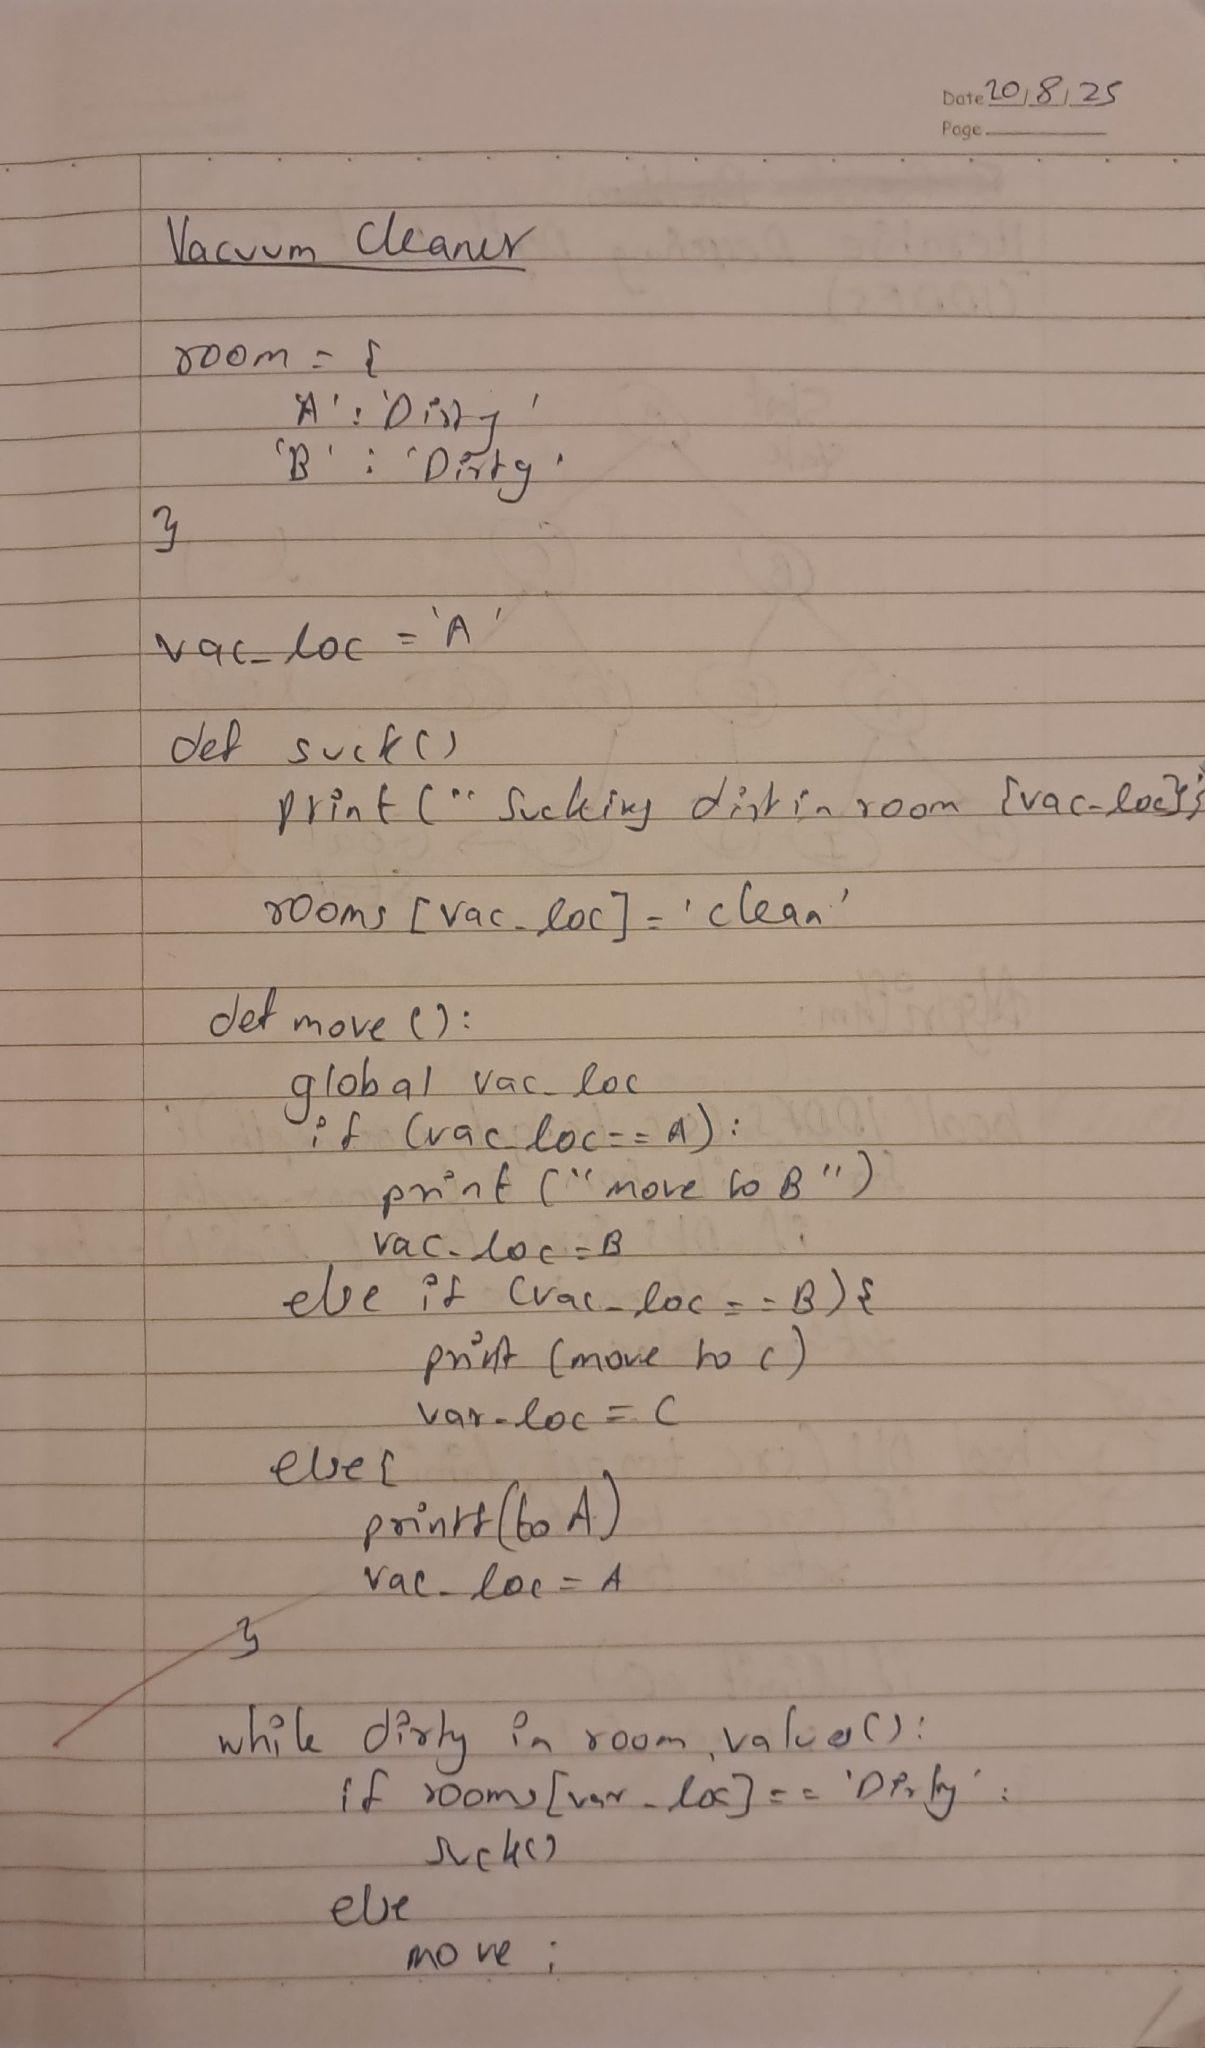 Date 20/8/25
Page
Vacuum Cleaner
room = {
'A' : 'Dirty'
'B' : 'Dirty'
}
vac_loc = 'A'
def suck()
print ("Sucking dirt in room {vac-loc}");
rooms [vac_loc] = 'clean'
def move():
global vac_loc
if (vac_loc == A):
print ("move to B")
vac_loc = B
else if (vac_loc == B){
print (move to c)
var_loc = C
else{
printf(to A)
vac_loc = A
}
while dirty in room.values():
if rooms[var_loc] == 'Dirty':
suck()
else
move;